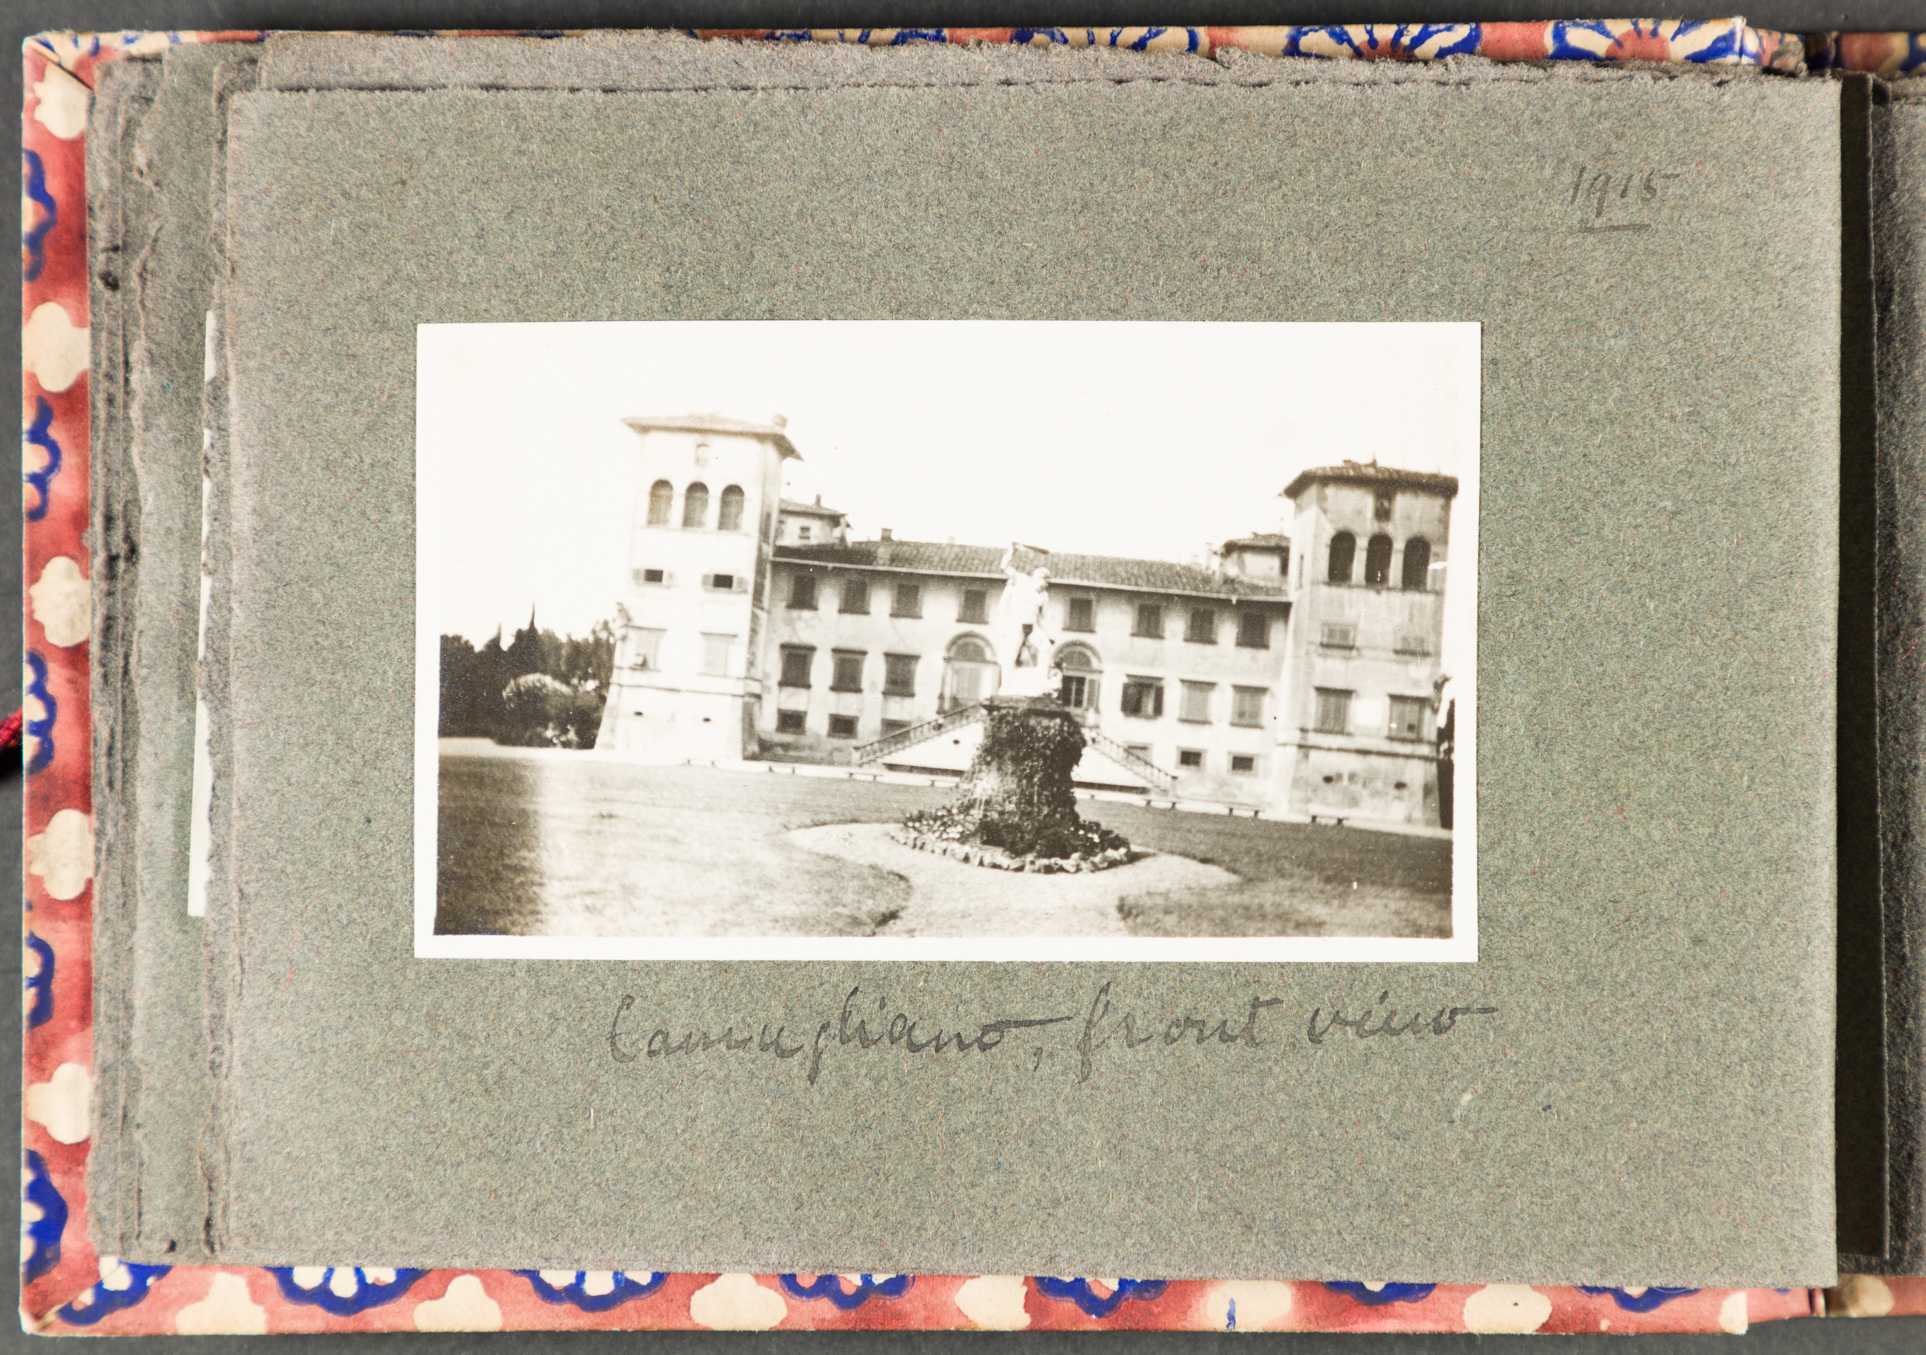 1915
Camugliano, front view